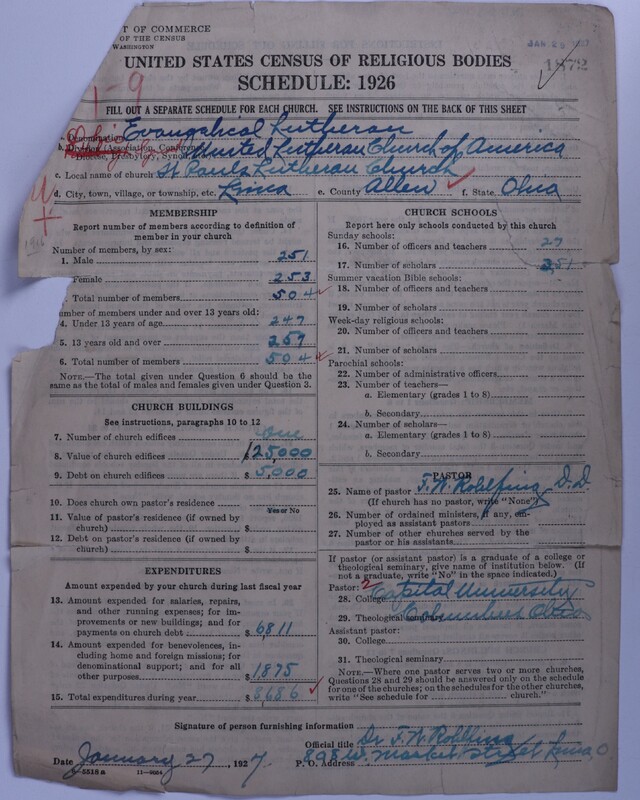 T OF COMMERCE
OF THE CENSUS
WASHINGTON
JAN 28
1872
UNITED STATES CENSUS OF RELIGIOUS BODIES
SCHEDULE: 1926
1-9
FILL OUT A SEPARATE SCHEDULE FOR EACH CHURCH. SEE INSTRUCTIONS ON THE BACK OF THIS SHEET
a. Denomination Evangelical Lutheran
b. Division (Association, Conference, Diocese, Presbytery, Synod, etc.) United Lutheran Church of America
Ohio
c. Local name of church St Pauls Lutheran Church
d. City, town, village, or township, etc. Lima e. County Allen f. State Ohio
1906
MEMBERSHIP
Report number of members according to definition of
member in your church
Number of members, by sex:
1. Male 251
Female 253
Total number of members 504
umber of members under and over 13 years old:
4. Under 13 years of age 247
5. 13 years old and over 257
6. Total number of members 504
NOTE.—The total given under Question 6 should be the
same as the total of males and females given under Question 3.
CHURCH BUILDINGS
See instructions, paragraphs 10 to 12
7. Number of church edifices one
8. Value of church edifices $125,000
9. Debt on church edifices $5,000
10. Does church own pastor's residence
Yes or No
11. Value of pastor's residence (if owned by
church) $
12. Debt on pastor's residence (if owned by
church) $
EXPENDITURES
Amount expended by your church during last fiscal year
13. Amount expended for salaries, repairs,
and other running expenses; for im-
provements or new buildings; and for
payments on church debt $6811
14. Amount expended for benevolences, in-
cluding home and foreign missions; for
denominational support; and for all
other purposes $1875
15. Total expenditures during year $8686
CHURCH SCHOOLS
Report here only schools conducted by this church
Sunday schools:
16. Number of officers and teachers 27
17. Number of scholars 351
Summer vacation Bible schools:
18. Number of officers and teachers
19. Number of scholars
Week-day religious schools:
20. Number of officers and teachers
21. Number of scholars
Parochial schools:
22. Number of administrative officers
23. Number of teachers—
a. Elementary (grades 1 to 8)
b. Secondary
24. Number of scholars—
a. Elementary (grades 1 to 8)
b. Secondary
PASTOR
25. Name of pastor F. W. Rohlfing D.D.
(If church has no pastor, write "None")
26. Number of ordained ministers, if any, em-
ployed as assistant pastors
27. Number of other churches served by the
pastor or his assistants
If pastor (or assistant pastor) is a graduate of a college or
theological seminary, give name of institution below. (If
not a graduate, write "No" in the space indicated.)
Pastor: 2
28. College Capital University
29. Theological seminary Columbus Ohio
Assistant pastor:
30. College
31. Theological seminary
NOTE.—Where one pastor serves two or more churches,
Questions 28 and 29 should be answered only on the schedule
for one of the churches; on the schedules for the other churches,
write "See schedule for church."
Signature of person furnishing information
Official title Dr F. W. Rohlfing
Date January 27, 1927. P. O. Address 898 W. Market Street Lima, O
8-5518 a 11-9064